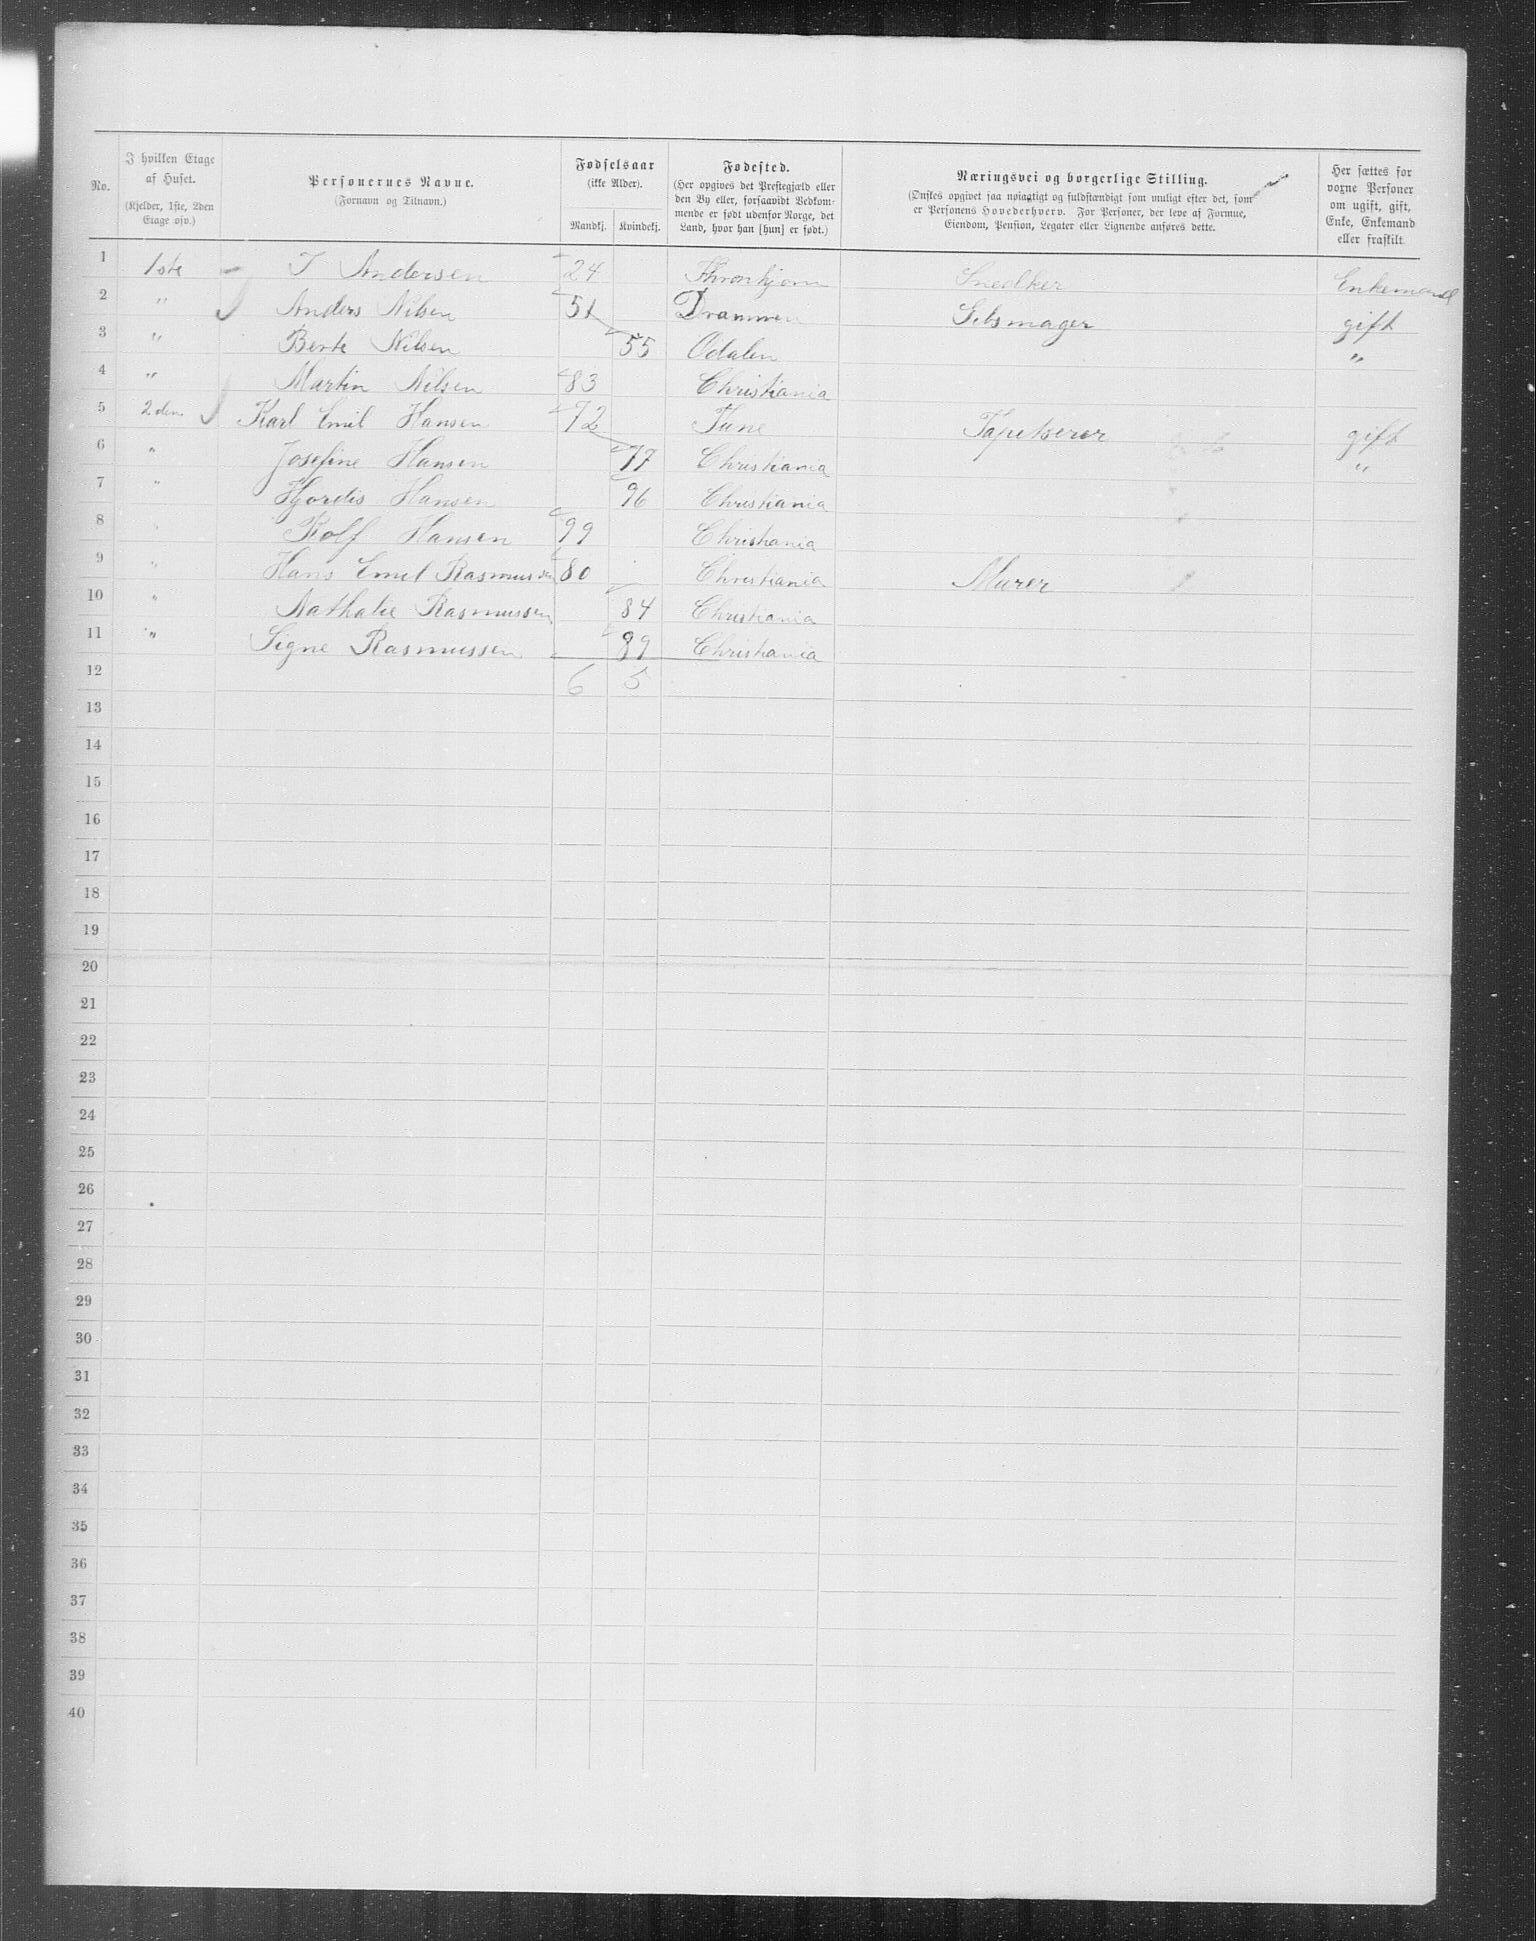 No.
I hvilken Etage af Huset.
(Kjelder, 1ste, 2den Etage osv.)
Personernes Navne.
(Fornavn og Tilnavn.)
Fødselsaar
(ikke Alder).
Mandkj. Kvindekj.
Fødested.
(Her opgives det Prestegjæld eller
den By eller, forsaavidt Vedkom-
mende er født udenfor Norge, det
Land, hvor han [hun] er født.)
Næringsvei og borgerlige Stilling.
(Ønskes opgivet saa nøiagtigt og fuldstændigt som muligt efter det, som
er Personens Hovederhverv. For Personer, der leve af Formue,
Eiendom, Pension, Legater eller Lignende anføres dette.
Her sættes for
voxne Personer
om ugift, gift,
Enke, Enkemand
eller fraskilt.
1 1ste J Andersen 24 Thronhjem Snedker Enkemand
2 " Anders Nilsen 51 Drammen gift
3 " Berte Nilsen 55 Odalen "
4 " Martin Nilsen 83 Christiania
5 2den Karl Emil Hansen 72 Tune Tapetserer gift
6 " Josefine Hansen 77 Christiania "
7 " Hjordis Hansen 96 Christiania
8 " Rolf Hansen 99 Christiania
9 " Hans Emil Rasmussen 80 Christiania Murer
10 " Nathalie Rasmussen 84 Christiania
11 " Signe Rasmussen 89 Christiania
12 6 5
13
14
15
16
17
18
19
20
21
22
23
24
25
26
27
28
29
30
31
32
33
34
35
36
37
38
39
40